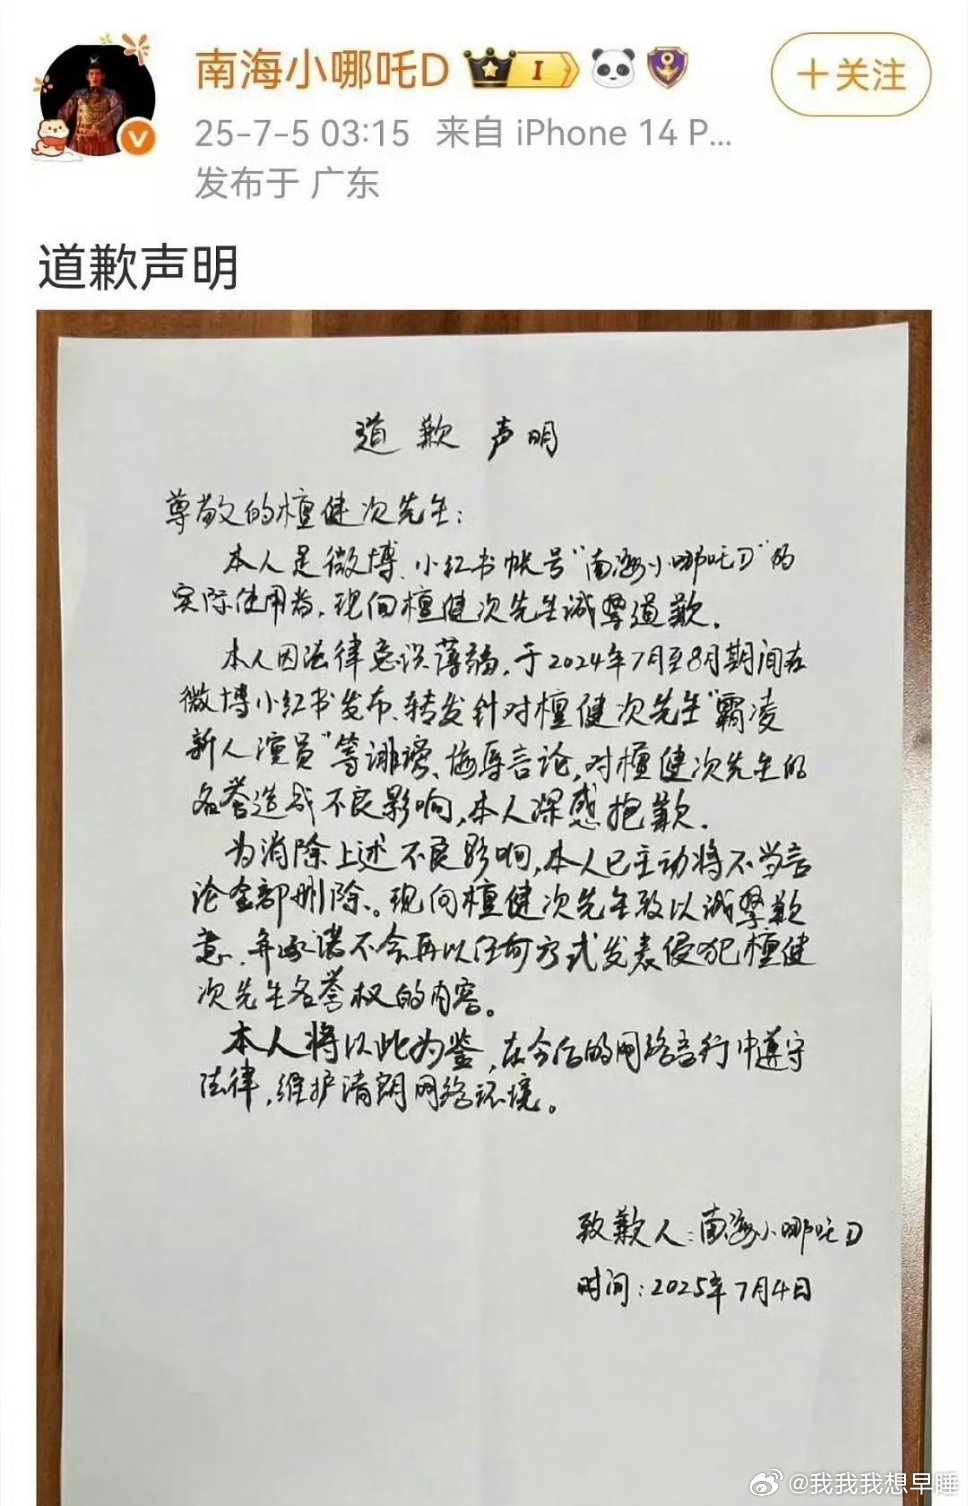 南海小哪吒D I
+关注
25-7-5 03:15 来自 iPhone 14 P...
发布于 广东
道歉声明
道歉声明
尊敬的檀健次先生：
本人是微博、小红书帐号“南海小哪吒D”的
实际使用者，现向檀健次先生诚挚道歉。
本人因法律意识薄弱，于2024年7月至8月期间在
微博小红书发布、转发针对檀健次先生“霸凌
新人演员”等诽谤、侮辱言论，对檀健次先生的
名誉造成不良影响，本人深感抱歉。
为消除上述不良影响，本人已主动将不当言
论全部删除。现向檀健次先生致以诚挚歉
意，并承诺不会再以任何方式发表侵犯檀健
次先生名誉权的内容。
本人将以此为鉴，在今后的网络言行中遵守
法律，维护清朗网络环境。
致歉人：南海小哪吒D
时间：2025年7月4日
@我我我想早睡